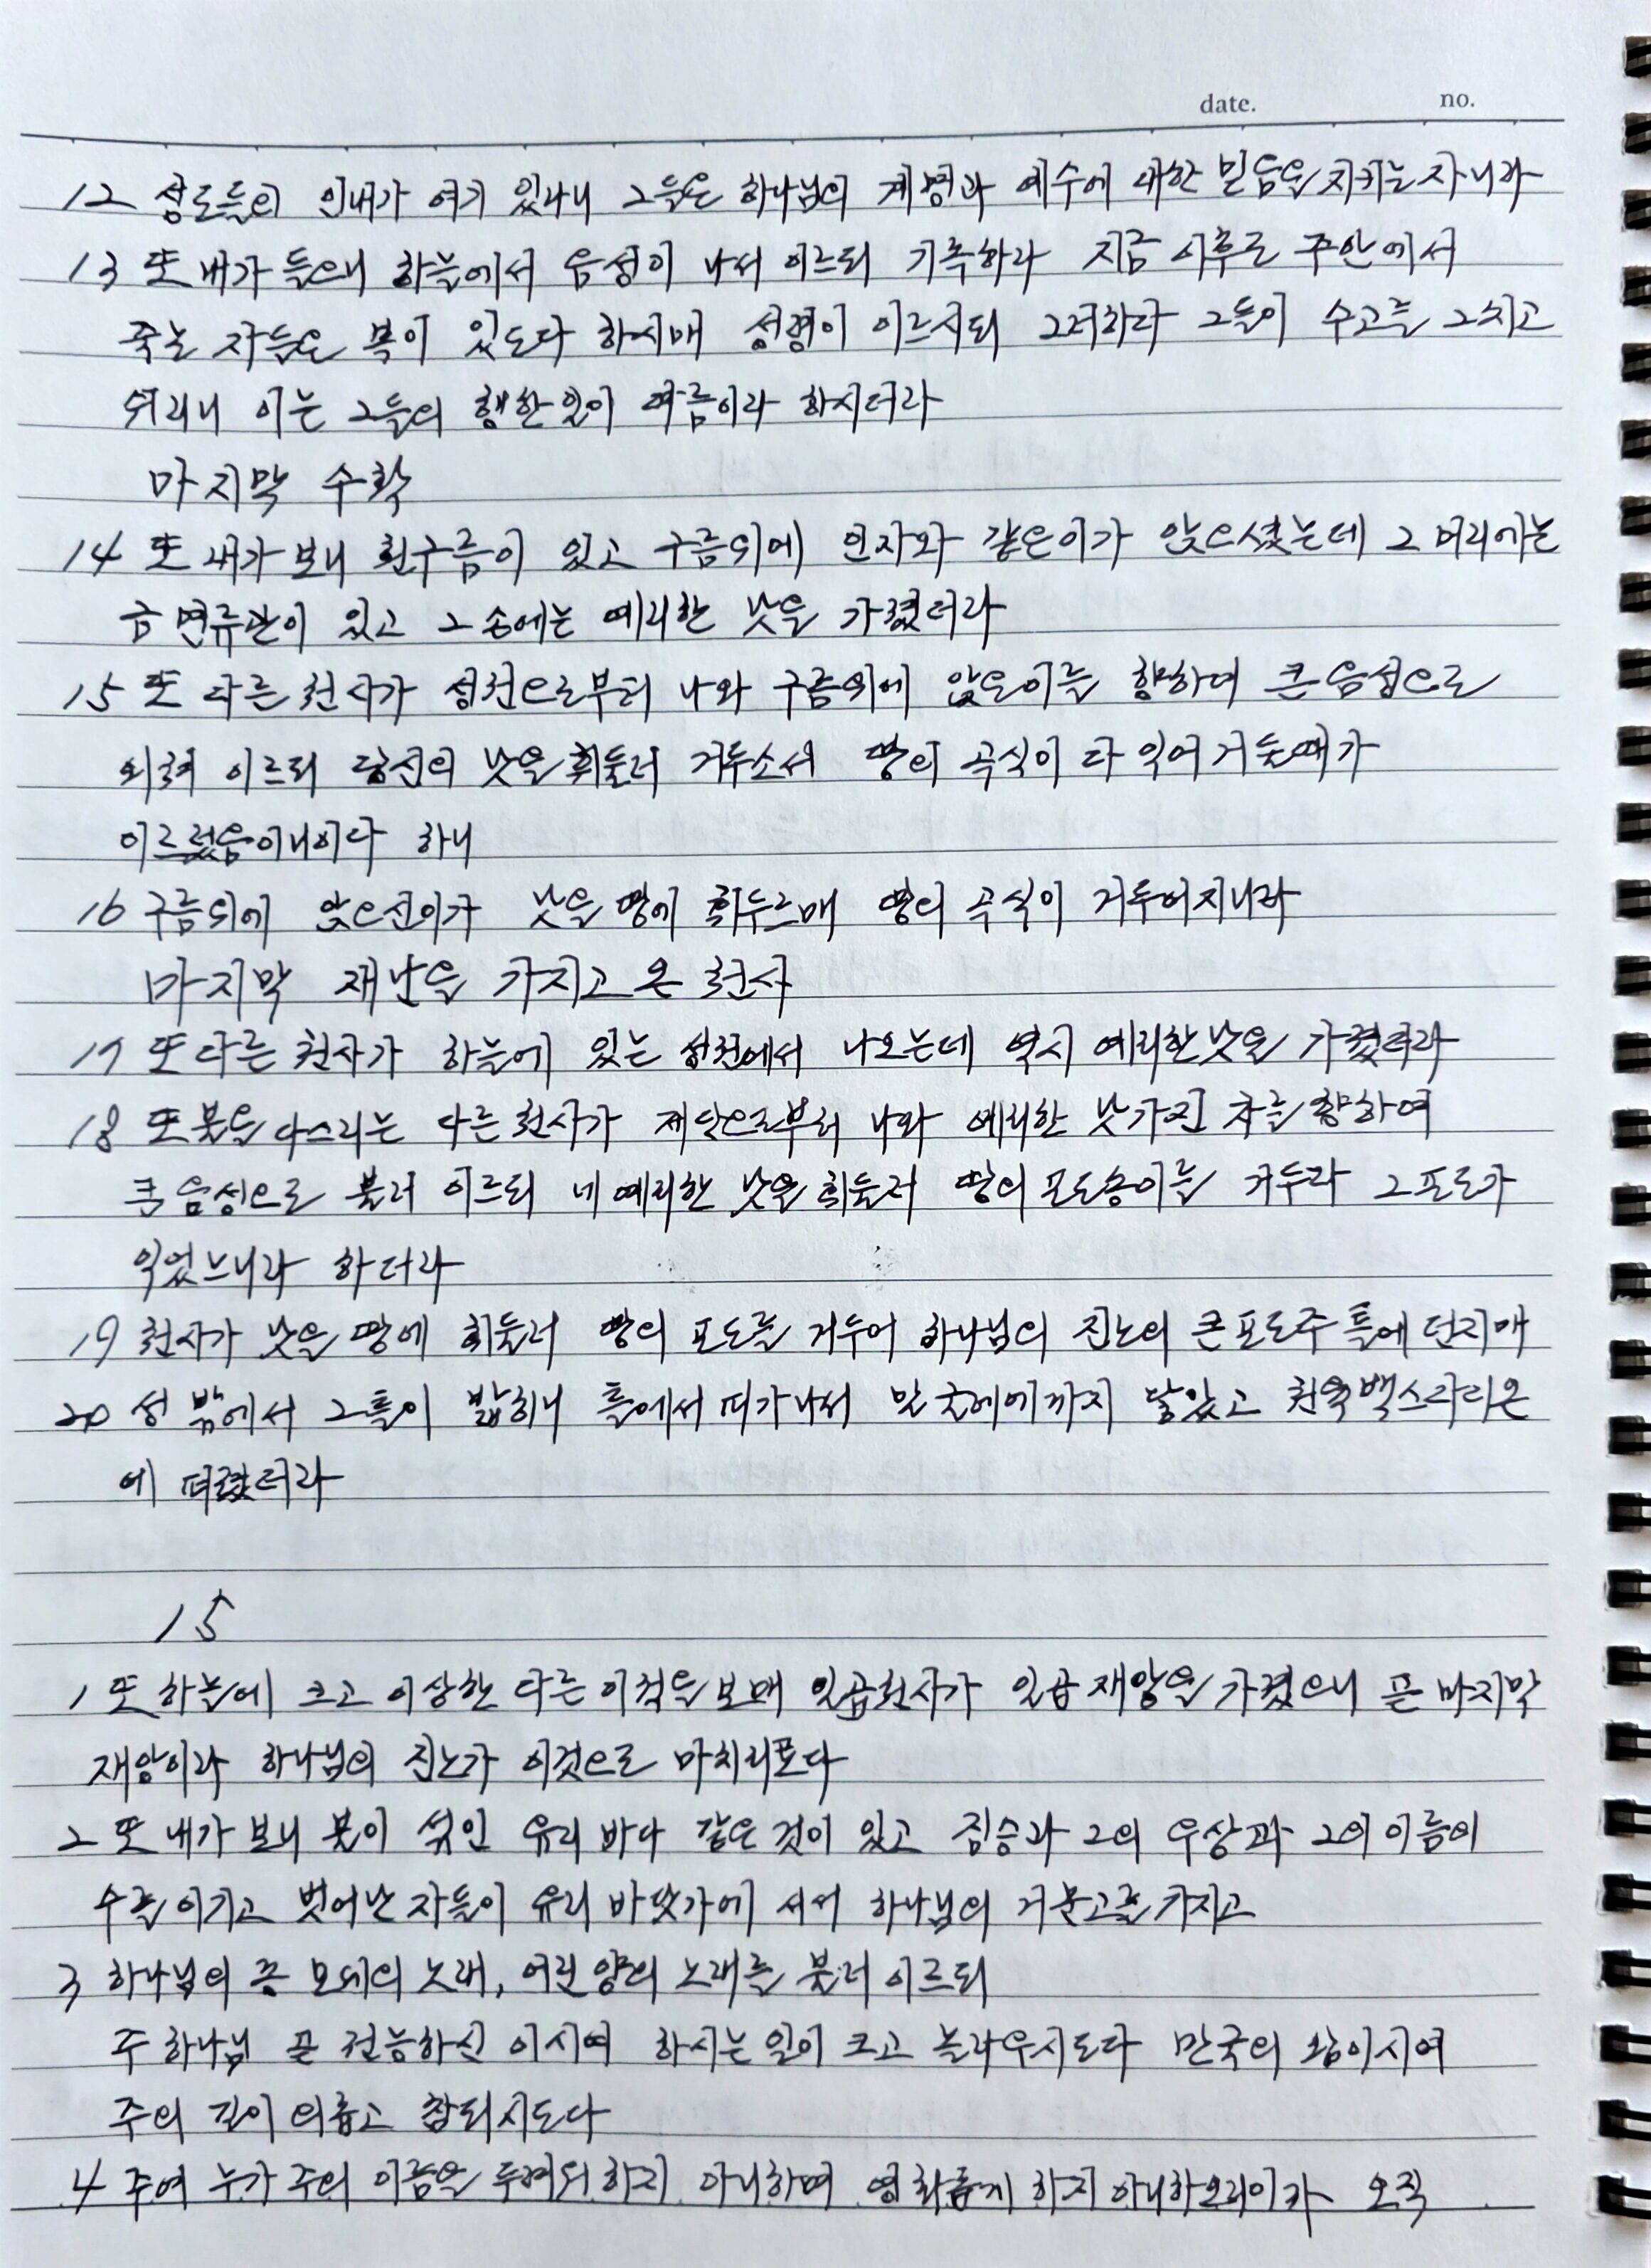 date. no.
12 성도들의 인내가 여기 있나니 그들은 하나님의 계명과 예수에 대한 믿음을 지키는 자니라
13 또 내가 들으니 하늘에서 음성이 나서 이르되 기록하라 지금 이후로 주안에서
죽는 자들은 복이 있도다 하시매 성령이 이르시되 그러하다 그들이 수고를 그치고
쉬리니 이는 그들의 행한 일이 따름이라 하시더라
마지막 수확
14 또 내가 보니 흰구름이 있고 구름위에 인자와 같은이가 앉으셨는데 그 머리에는
금 면류관이 있고 그 손에는 예리한 낫을 가졌더라
15 또 다른 천사가 성전으로부터 나와 구름위에 앉은이를 향하여 큰 음성으로
외쳐 이르되 당신의 낫을 휘둘러 거두소서 땅의 곡식이 다 익어 거둘때가
이르렀음이니이다 하니
16 구름위에 앉으신이가 낫을 땅에 휘두르매 땅의 곡식이 거두어지니라
마지막 재난을 가지고 온 천사
17 또 다른 천사가 하늘에 있는 성전에서 나오는데 역시 예리한 낫을 가졌더라
18 또 불을 다스리는 다른 천사가 제단으로부터 나와 예리한 낫가진 자를 향하여
큰 음성으로 불러 이르되 네 예리한 낫을 휘둘러 땅의 포도송이를 거두라 그 포도가
익었느니라 하더라
19 천사가 낫을 땅에 휘둘러 땅의 포도를 거두어 하나님의 진노의 큰 포도주 틀에 던지매
20 성 밖에서 그 틀이 밟히니 틀에서 피가 나서 말 굴레에까지 닿았고 천육백스다디온
에 퍼졌더라
15
1 또 하늘에 크고 이상한 다른 이적을 보매 일곱천사가 일곱 재앙을 가졌으니 곧 마지막
재앙이라 하나님의 진노가 이것으로 마치리로다
2 또 내가 보니 불이 섞인 유리 바다 같은 것이 있고 짐승과 그의 우상과 그의 이름의
수를 이기고 벗어난 자들이 유리 바닷가에 서서 하나님의 거문고를 가지고
3 하나님의 종 모세의 노래, 어린 양의 노래를 불러 이르되
주 하나님 곧 전능하신 이시여 하시는 일이 크고 놀라우시도다 만국의 왕이시여
주의 길이 의롭고 참되시도다
4 주여 누가 주의 이름을 두려워 하지 아니하며 영화롭게 하지 아니하오리이까 오직